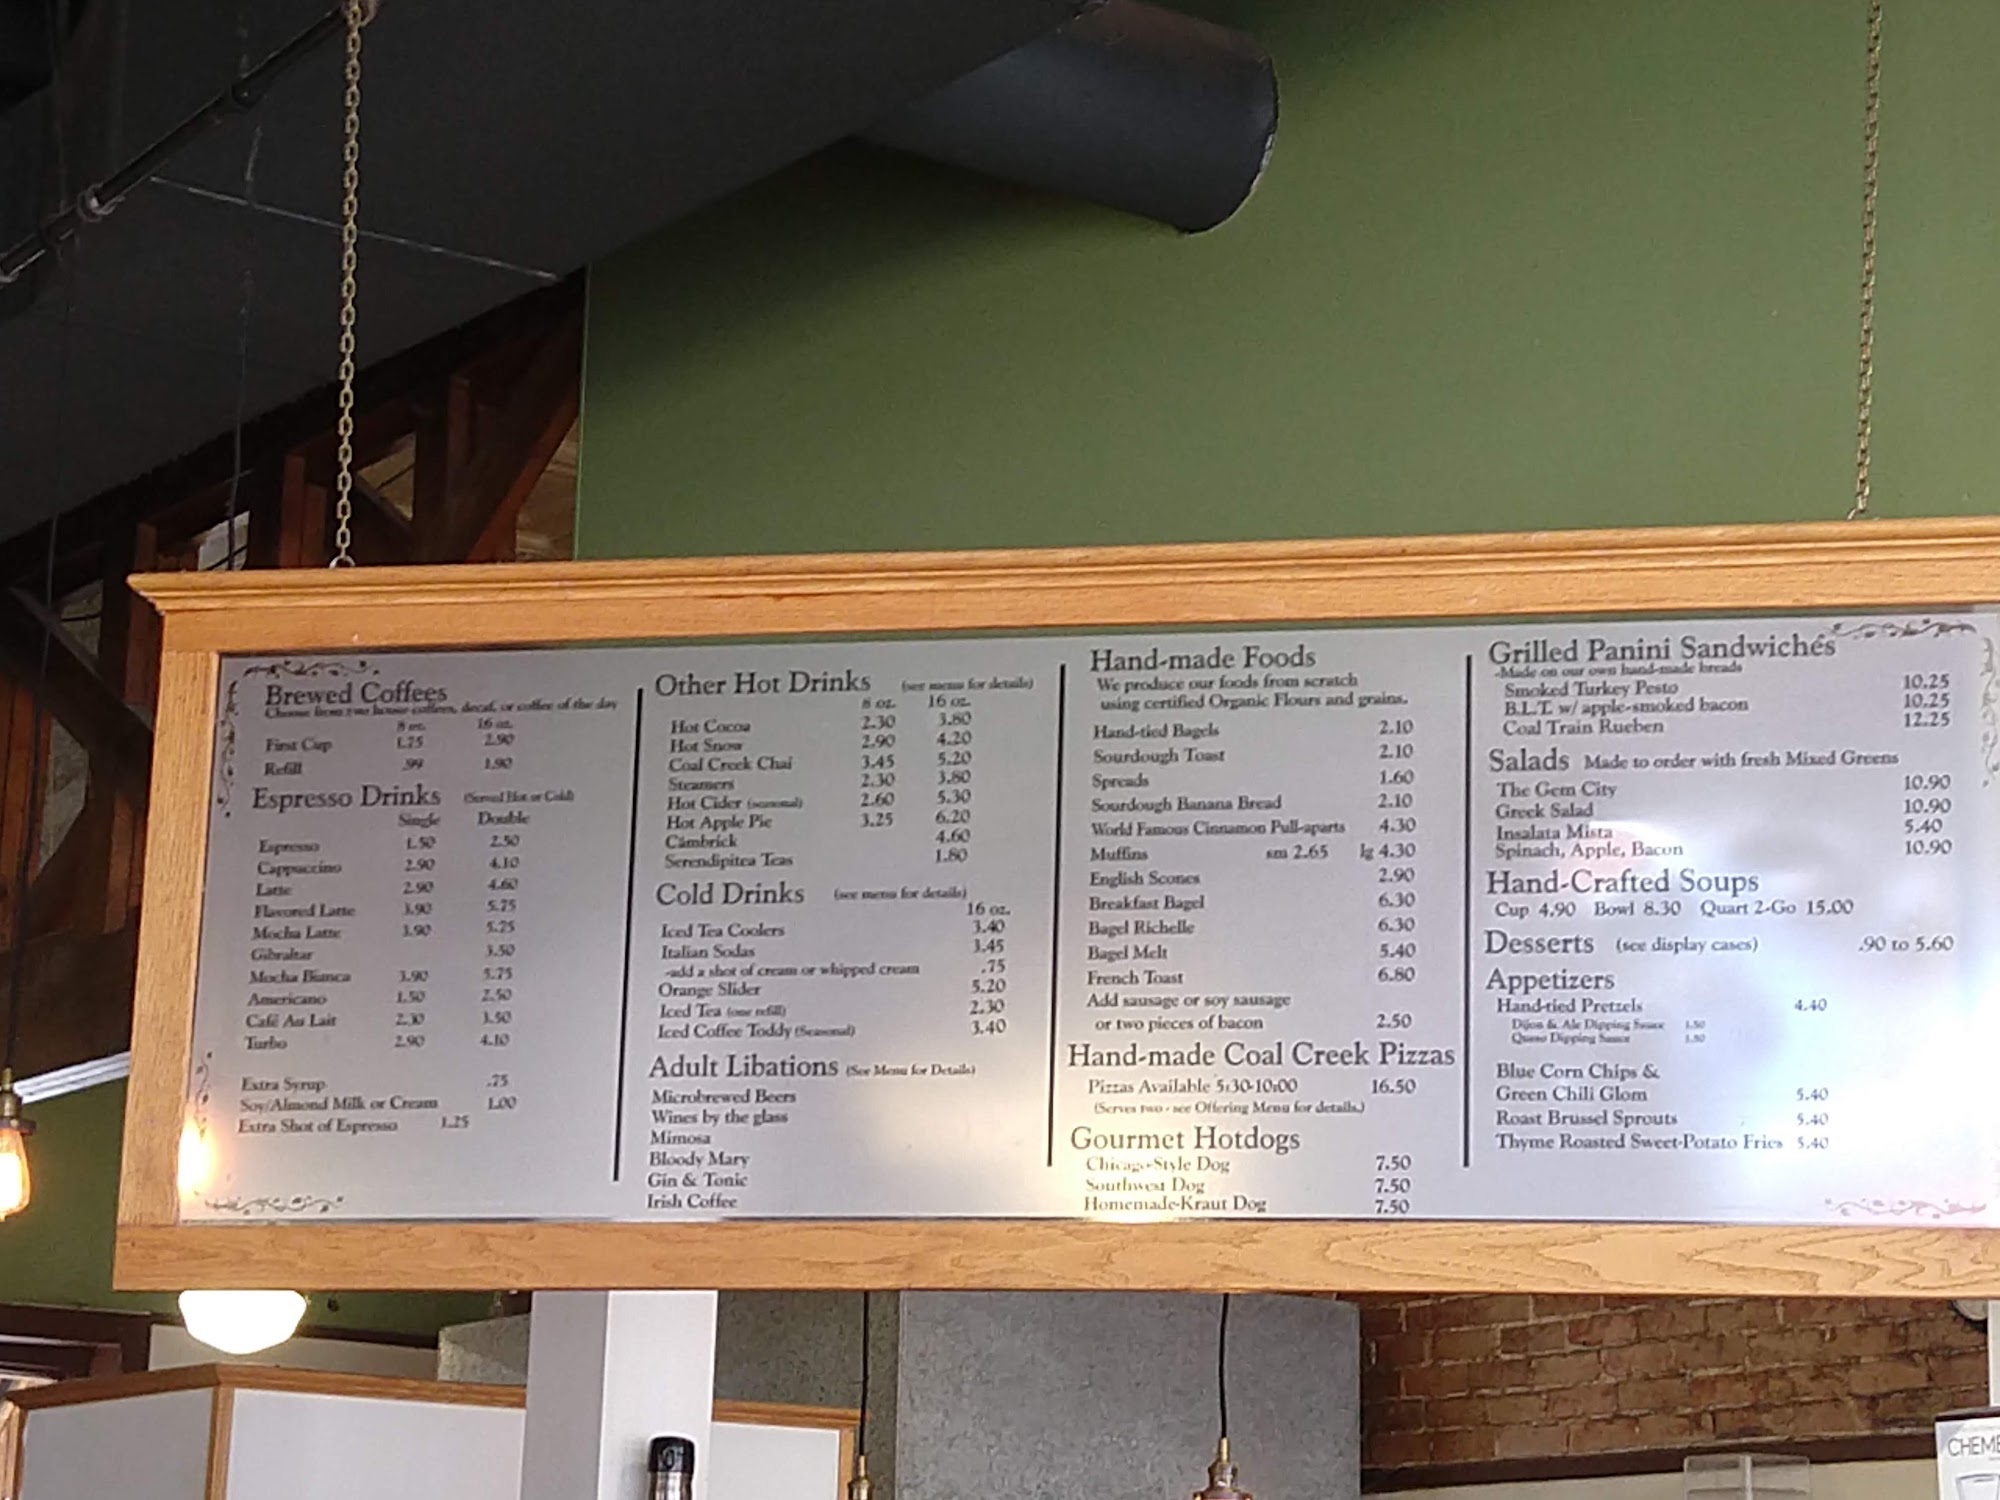 Brewed Coffees
Choose from two house coffees, decaf, or coffee of the day
8 oz. 16 oz.
First Cup 1.75 2.90
Refill .99 1.90
Espresso Drinks (Served Hot or Cold)
Single Double
Espresso 1.50 2.50
Cappuccino 2.90 4.10
Latte 2.90 4.60
Flavored Latte 3.90 5.75
Mocha Latte 3.90 5.75
Gibraltar 3.50
Mocha Bianca 3.90 5.75
Americano 1.50 2.50
Café Au Lait 2.30 3.50
Turbo 2.90 4.10
Extra Syrup .75
Soy/Almond Milk or Cream 1.00
Extra Shot of Espresso 1.25
Other Hot Drinks (see menu for details)
8 oz. 16 oz.
Hot Cocoa 2.30 3.80
Hot Snow 2.90 4.20
Coal Creek Chai 3.45 5.20
Steamers 2.30 3.80
Hot Cider (seasonal) 2.60 5.30
Hot Apple Pie 3.25 6.20
Cambrick 4.60
Serendipitea Teas 1.80
Cold Drinks (see menu for details)
16 oz.
Iced Tea Coolers 3.40
Italian Sodas 3.45
-add a shot of cream or whipped cream .75
Orange Slider 5.20
Iced Tea (one refill) 2.30
Iced Coffee Toddy (Seasonal) 3.40
Adult Libations (See Menu for Details)
Microbrewed Beers
Wines by the glass
Mimosa
Bloody Mary
Gin & Tonic
Irish Coffee
Hand-made Foods
We produce our foods from scratch
using certified Organic Flours and grains.
Hand-tied Bagels 2.10
Sourdough Toast 2.10
Spreads 1.60
Sourdough Banana Bread 2.10
World Famous Cinnamon Pull-aparts 4.30
Muffins sm 2.65 lg 4.30
English Scones 2.90
Breakfast Bagel 6.30
Bagel Richelle 6.30
Bagel Melt 5.40
French Toast 6.80
Add sausage or soy sausage
or two pieces of bacon 2.50
Hand-made Coal Creek Pizzas
Pizzas Available 5:30-10:00 16.50
(Serves two - see Offering Menu for details.)
Gourmet Hotdogs
Chicago-Style Dog 7.50
Southwest Dog 7.50
Homemade-Kraut Dog 7.50
Grilled Panini Sandwichés
-Made on our own hand-made breads
Smoked Turkey Pesto 10.25
B.L.T. w/ apple-smoked bacon 10.25
Coal Train Rueben 12.25
Salads Made to order with fresh Mixed Greens
The Gem City 10.90
Greek Salad 10.90
Insalata Mista 5.40
Spinach, Apple, Bacon 10.90
Hand-Crafted Soups
Cup 4.90 Bowl 8.30 Quart 2-Go 15.00
Desserts (see display cases) .90 to 5.60
Appetizers
Hand-tied Pretzels 4.40
Dijon & Ale Dipping Sauce 1.50
Queso Dipping Sauce 1.50
Blue Corn Chips &
Green Chili Glom 5.40
Roast Brussel Sprouts 5.40
Thyme Roasted Sweet-Potato Fries 5.40
CHEME